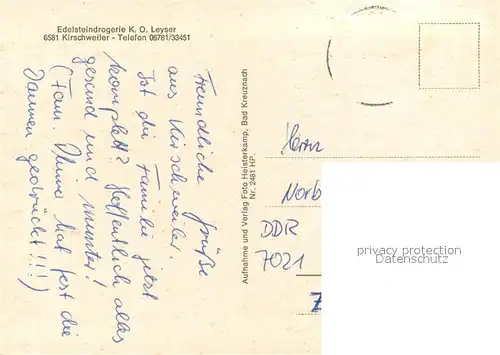 Edelsteindrogerie K. O. Leyser
6581 Kirschweiler - Telefon 06781/33451
Freundliche Grüße
aus Kirschweiler.
Ist die Familie jetzt
komplett? Hoffentlich alles
gesund und munter!
(Fam. hat fest die
Daumen gedrückt!!!)
Aufnahme und Verlag Foto Heisterkamp, Bad Kreuznach
Nr. 2481 HP.
Herrn
Norb
DDR
7021
Z
privacy protection
Datenschutz